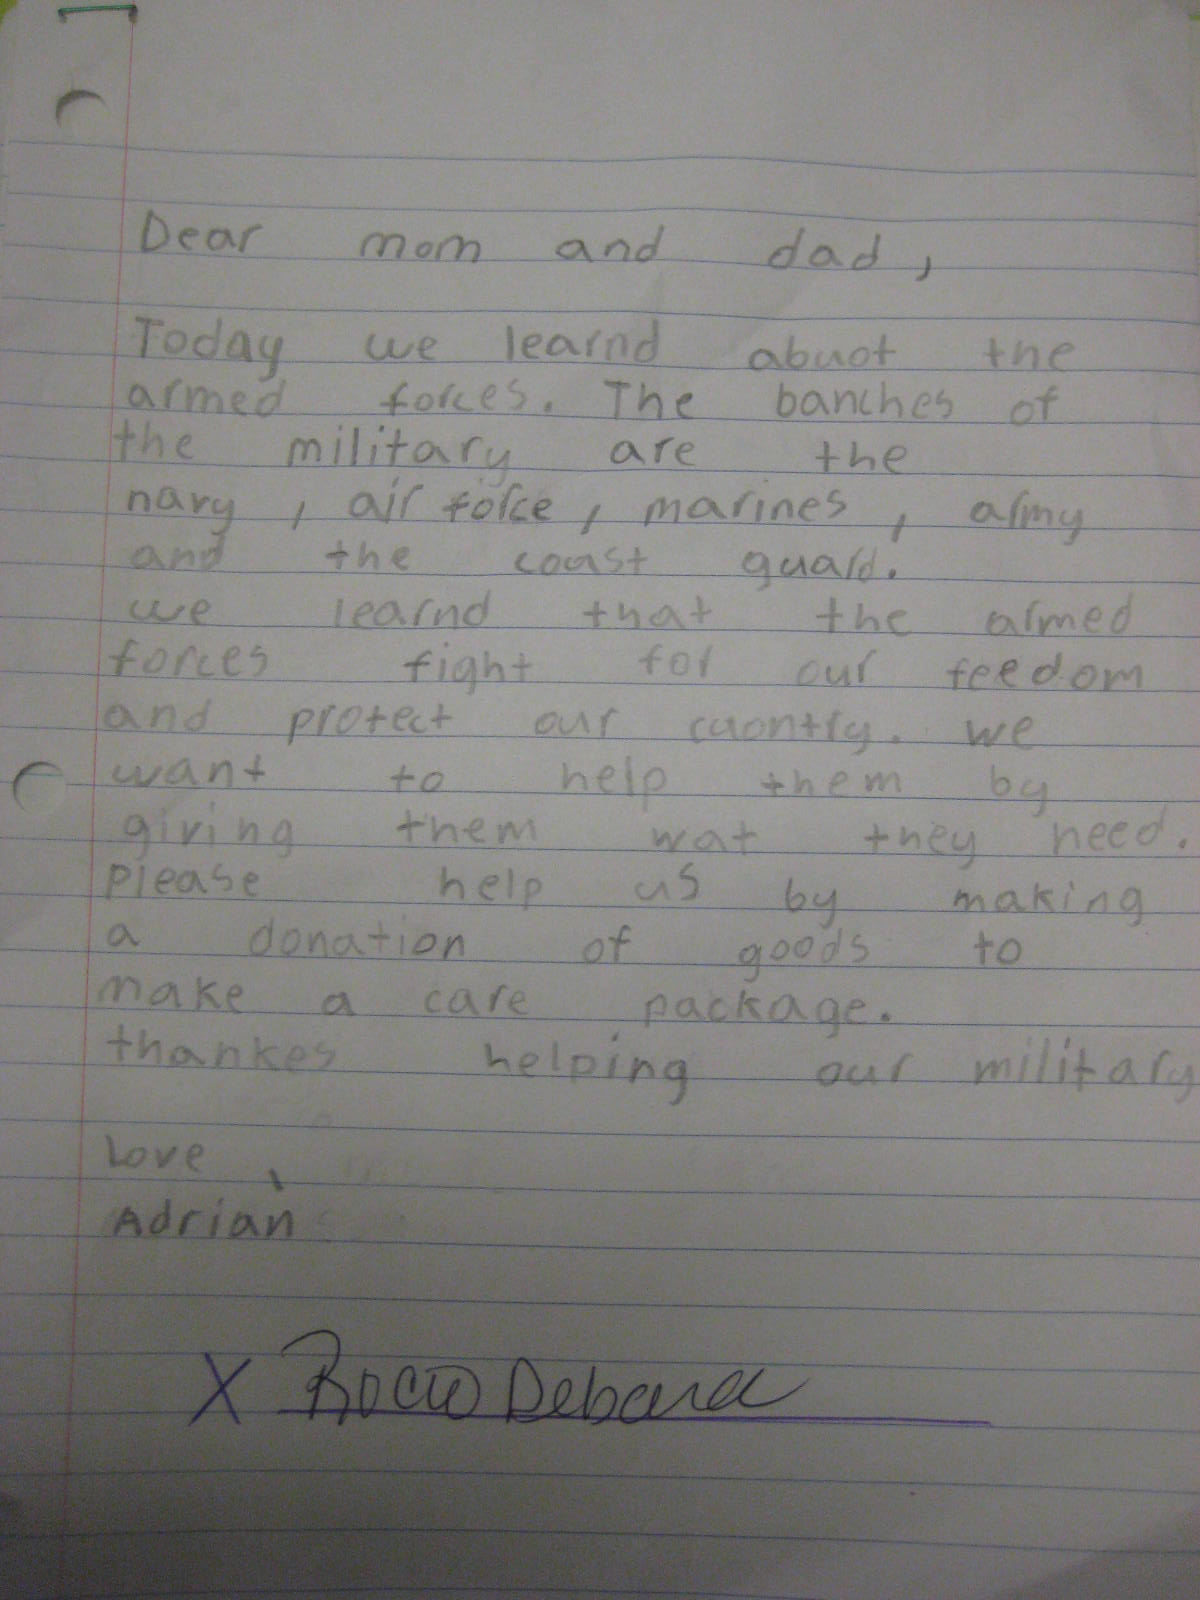 Dear mom and dad,
Today we learnd abuot the
armed forces. The banches of
the military are the
navy, air force, marines, army
and the coast guard.
we learnd that the armed
forces fight for our feedom
and protect our cuontry. we
want to help them by
giving them wat they need.
please help us by making
a donation of goods to
make a care package.
thankes helping our military
Love,
Adrian
X Rocio